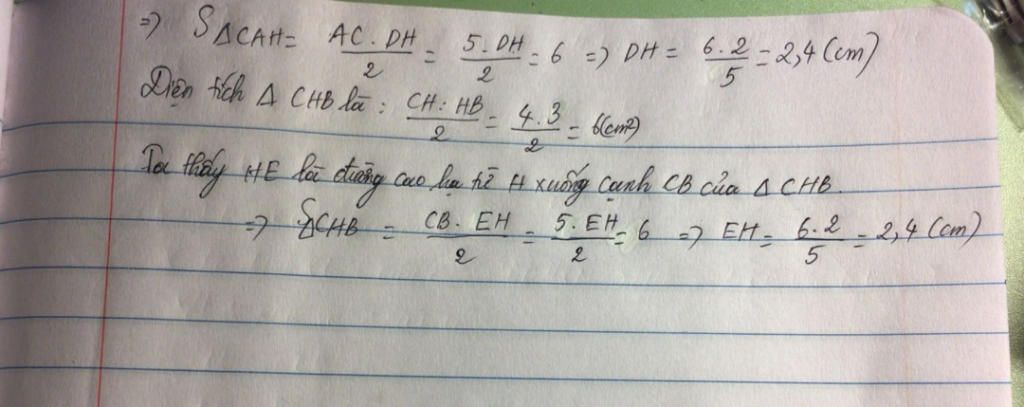 => S△CAH = AC . DH / 2 = 5 . DH / 2 = 6 => DH = 6 . 2 / 5 = 2,4 (cm)
Diện tích △ CHB là : CH : HB / 2 = 4 . 3 / 2 = 6(cm²)
Ta thấy HE là đường cao hạ từ H xuống cạnh CB của △ CHB.
=> S△CHB = CB . EH / 2 = 5 . EH / 2 = 6 => EH = 6 . 2 / 5 = 2,4 (cm)